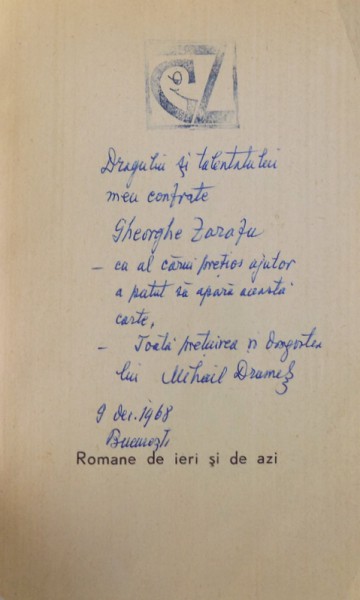 GZ
Dragului și talentatului
meu confrate
Gheorghe Zarafu
– cu al cărui prețios ajutor
a putut să apară această
carte,
– Toată prețuirea și dragostea
lui Mihail Drumeș
9 dec. 1968
București
Romane de ieri și de azi